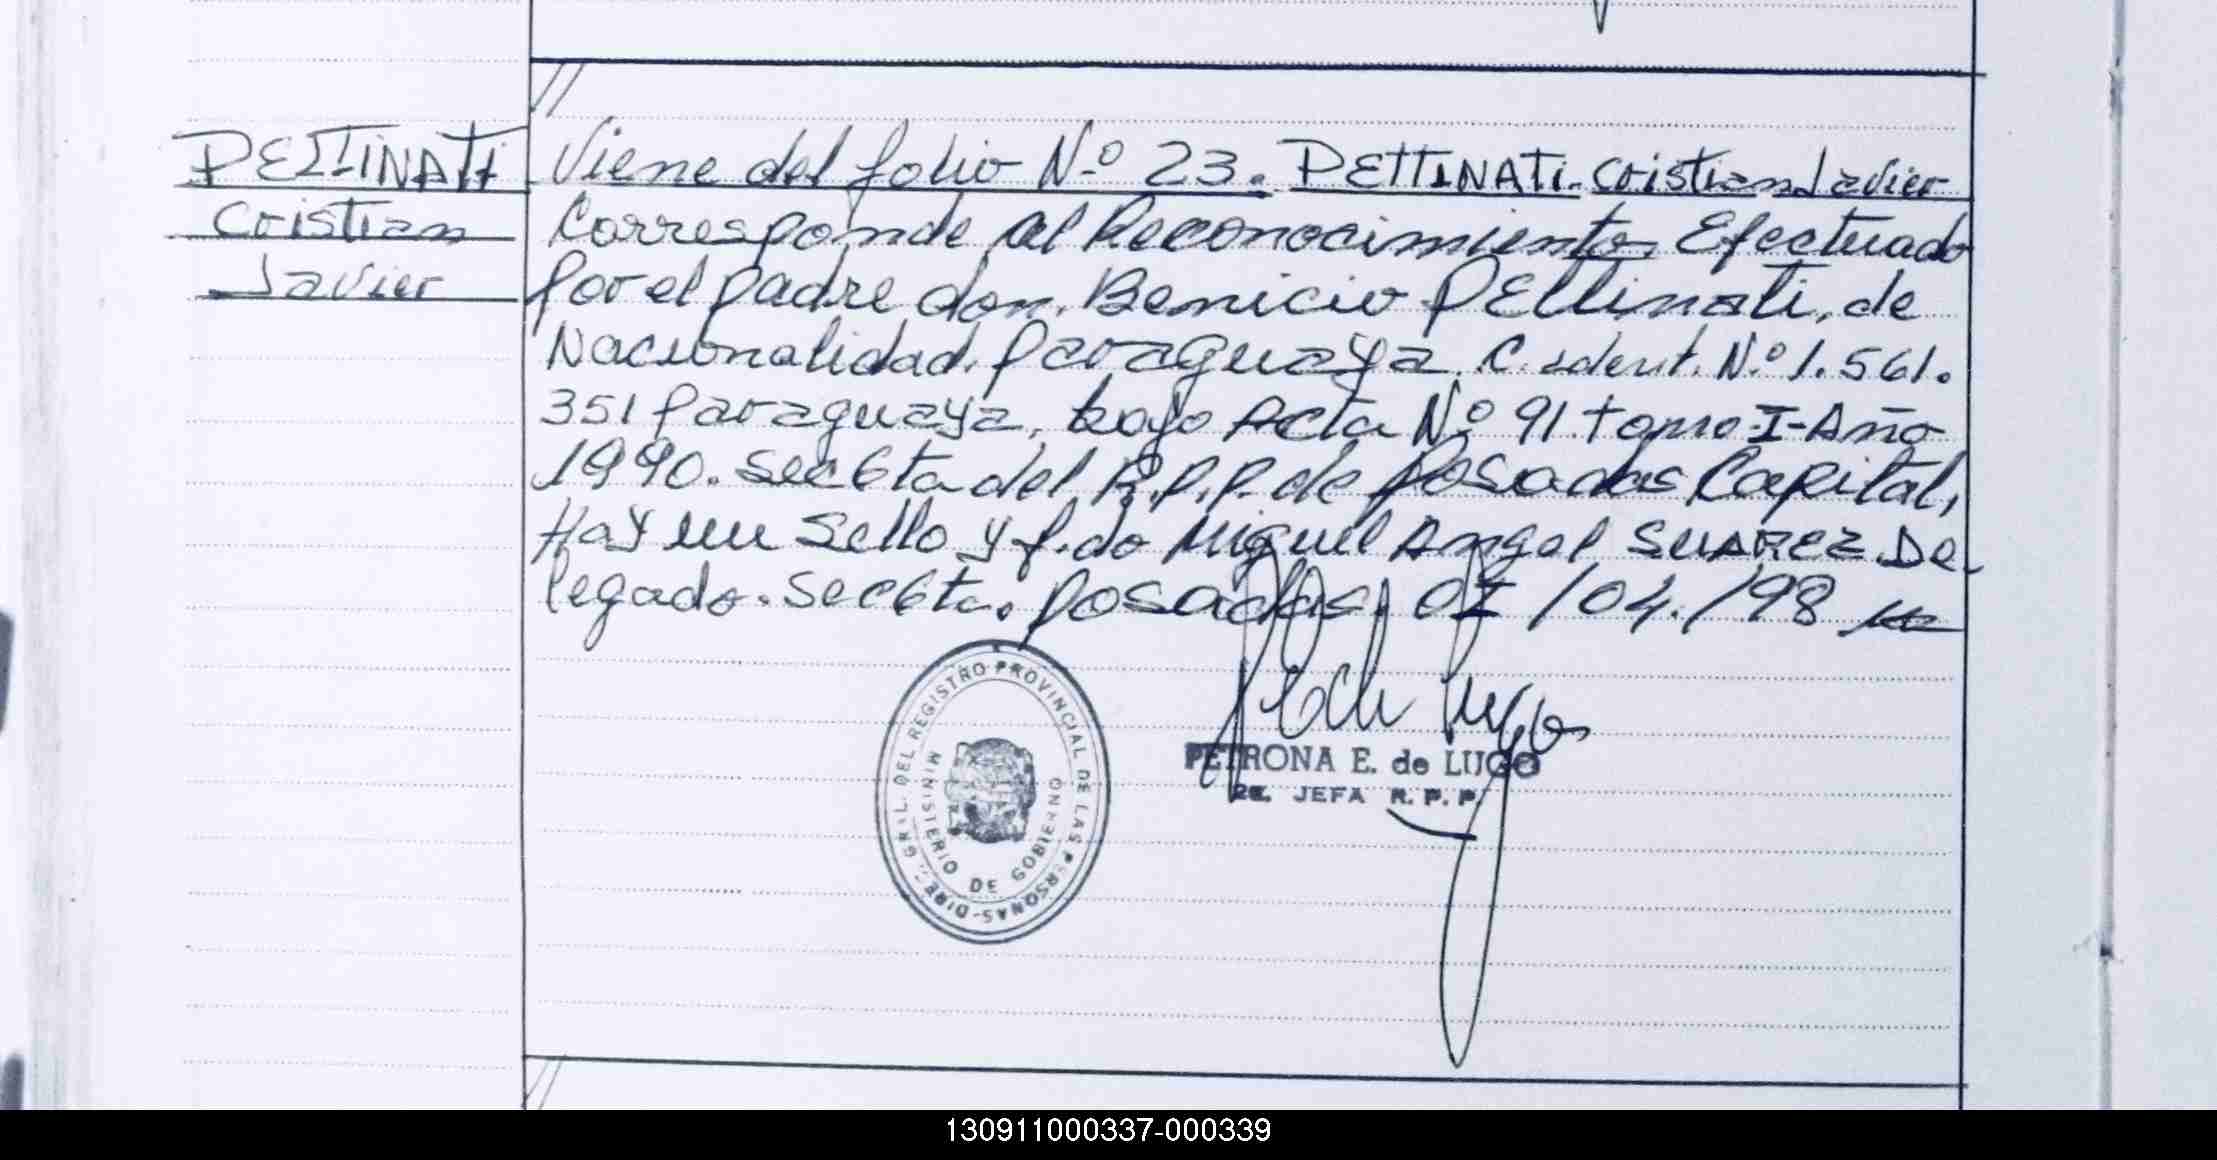 PETTINATI
Cristian
Javier
Viene del folio N.º 23. PETTINATI. Cristian Javier
Corresponde al Reconocimiento, Efectuado
por el padre don. Benicio PEttinati, de
Nacionalidad. paraguaya. C. ident. N.º 1.561.
351 paraguaya, bajo Acta Nº 91. tomo-I-Año
1990. Sec 6ta del R.P.P. de posadas Capital,
Hay un Sello y f.do Miguel Angel SUAREZ. De
legado. Sec 6ta. posadas, /04./98
DIREC. GRAL. DEL REGISTRO PROVINCIAL DE LAS PERSONAS-
MINISTERIO DE GOBIERNO
PETRONA E. de LUGO
JEFA R. P. P.
130911000337-000339